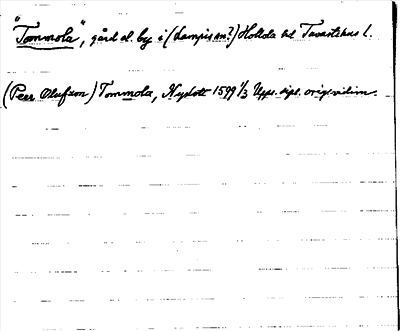 "Tommola", gård el. by i (Lampis sn?) Hollola hd Tavastehus l.
(Peer Olufson) Tommola, Nyslott 1599 1/3 Upps. dipl. orig. vidim.